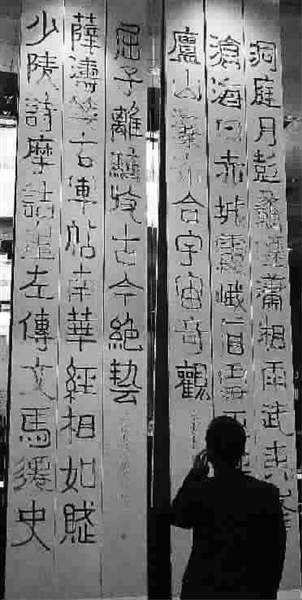 洞庭月彭蠡煙瀟湘雨武夷峰
滄海日赤城霞峨眉雪巫
廬山瀑布合宇宙奇觀
少陵詩摩詰畫左傳文馬遷史
薛濤箋右軍帖南華經相如賦
屈子離騷收古今絕藝